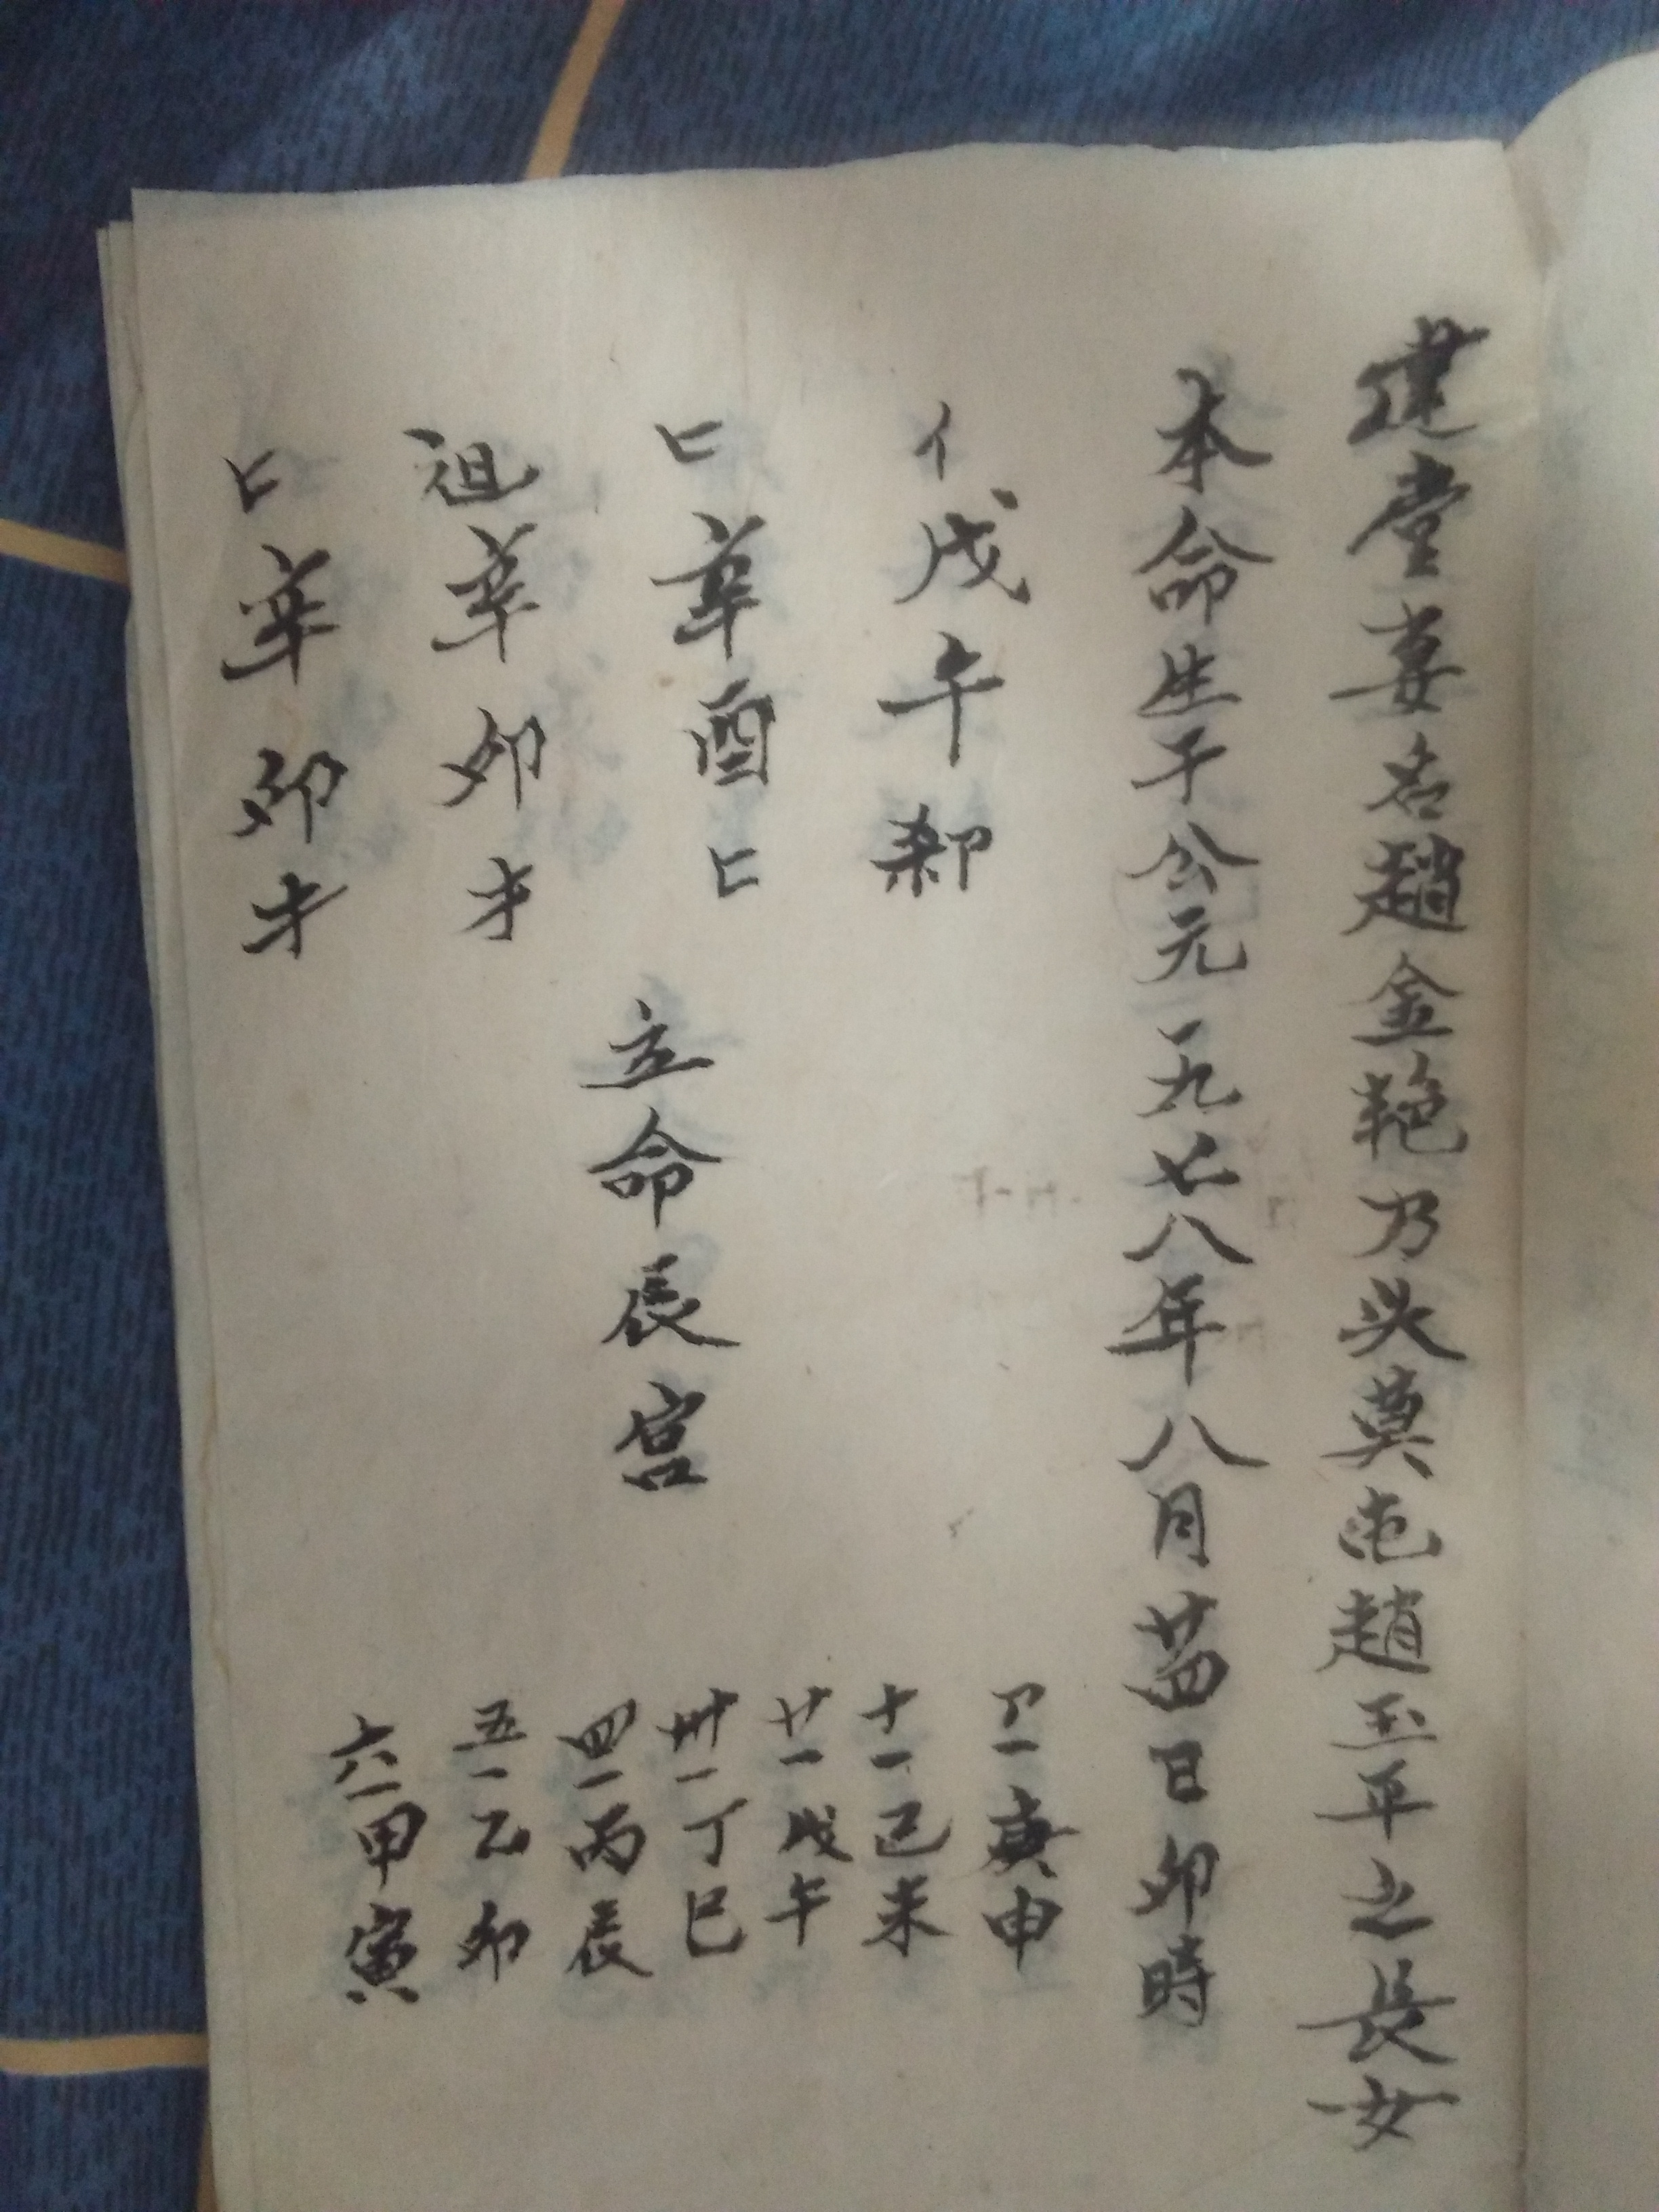 建堂妻名趙金艳乃头莫屯趙玉平之長女
本命生于公元一九七八年八月廿四日卯時
亻戊午刹
辛酉
辛卯才
辛卯才
立命辰宮
一庚申
十一己未
廿一戊午
卅一丁巳
四一丙辰
五一乙卯
六一甲寅